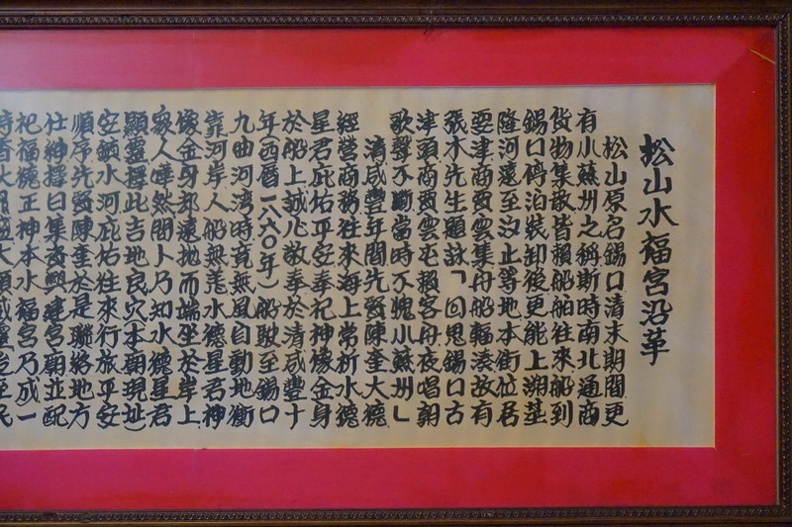 松山水福宮沿革
松山原名錫口清末期間更
有小蘇州之稱斯時南北通商
貨物集散皆賴船舶往來船到
錫口停泊裝卸後更能上溯基
隆河遠至汐止等地本街位居
要津商賈雲集舟船輻湊故有
張木先生題詠「回思錫口古
津頭商賈雲屯報客舟夜唱朝
歌聲不斷當時不愧小蘇州」
清咸豐年間先賢陳奎大德
經營商務往來海上常祈水德
星君庇佑平安奉祀神像金身
於船上誠心敬奉於清咸豐十
年西曆一八六〇年)船駛至錫口
九曲河灣時竟無風自動地衝
靠河岸人船無恙水德星君神
像金身却遠拋而端坐於岸上
眾人嘩然問卜乃知水德星君
顯靈擇此吉地良穴(本廟現址)
安鎮水河庇佑往來行旅平安
順序先賢陳奎於是聯絡地方
仕紳擇日集資興建宮廟並配
祀福德正神本水福宮乃成一
時香火鼎盛大顯威靈治至民